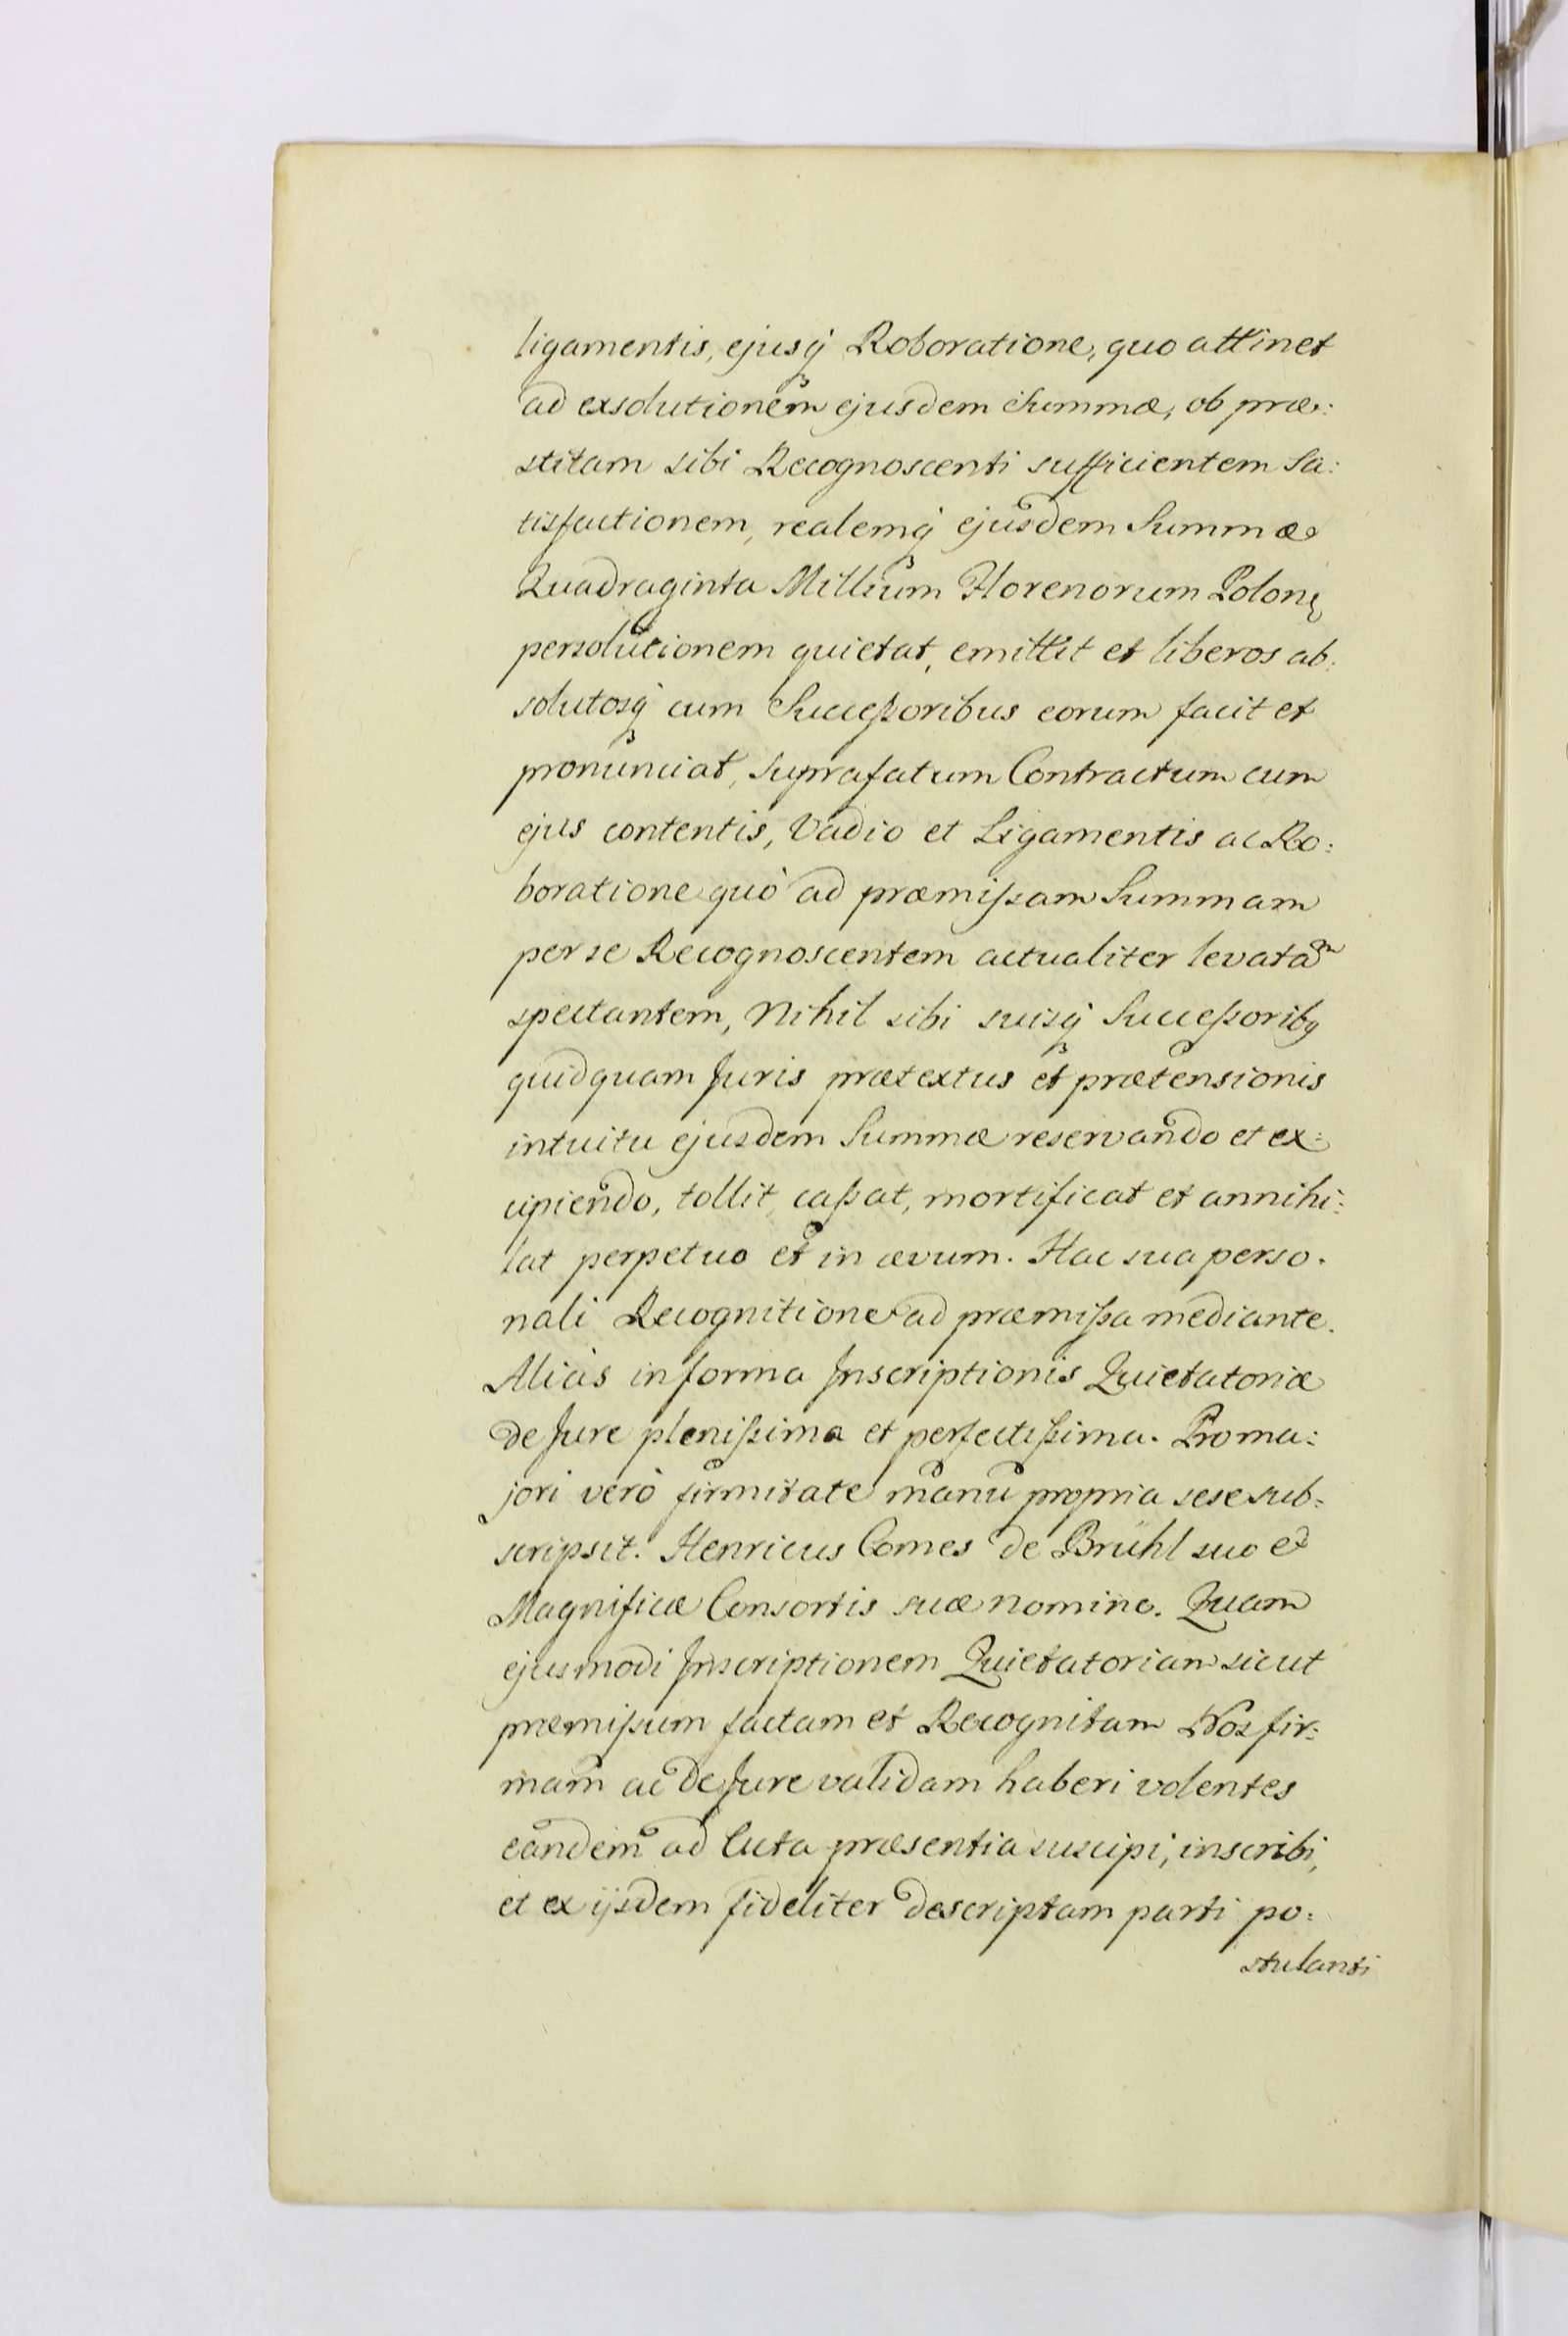 ligamentis, ejusq́ꝫ Roboratione, quo attinet
ad exsolutionem ejusdem Summæ, ob præ:
stitam sibi Recognoscenti sufficientem Sa:
tisfactionem, realemq́ꝫ ejusdem Summæ
Quadraginta Millium Florenorum Polon:
persolutionem quietat, emittit et liberos ab:
solutosq́ꝫ cum Succeßoribus eorum facit et
pronunciat, suprafatum Contractum cum
ejus contentis, Vadio et Ligamentis ac Ro:
boratione quò ad præmißam Summam
per se Recognoscentem actualiter levatam
spectantem, Nihil sibi suisq́ꝫ Succeßorib9
quidquam Juris prætextus et prætensionis
intuitu ejusdem Summæ reservando et ex:
cipiendo, tollit, caßat, mortificat et annihi:
lat perpetuo et in ævum. Hac sua perso.
nali Recognitione ad præmißa mediante.
Aliàs in forma Inscriptionis Quietatoriæ
de Jure plenißima et perfectißima. Pro ma:
jori verò firmitate manu propria sese sub:
scripsit. Henricus Comes de Brühl suo et
Magnificæ Consortis suæ nomine. Quam
ejusmodi Inscriptionem Quietatoriam sicut
præmißum factam et Recognitam Nos fir:
mam ac de Jure validam haberi volentes
eandem ad Acta præsentia suscipi, inscribi,
et ex ijsdem fideliter descriptam parti po:
stulanti